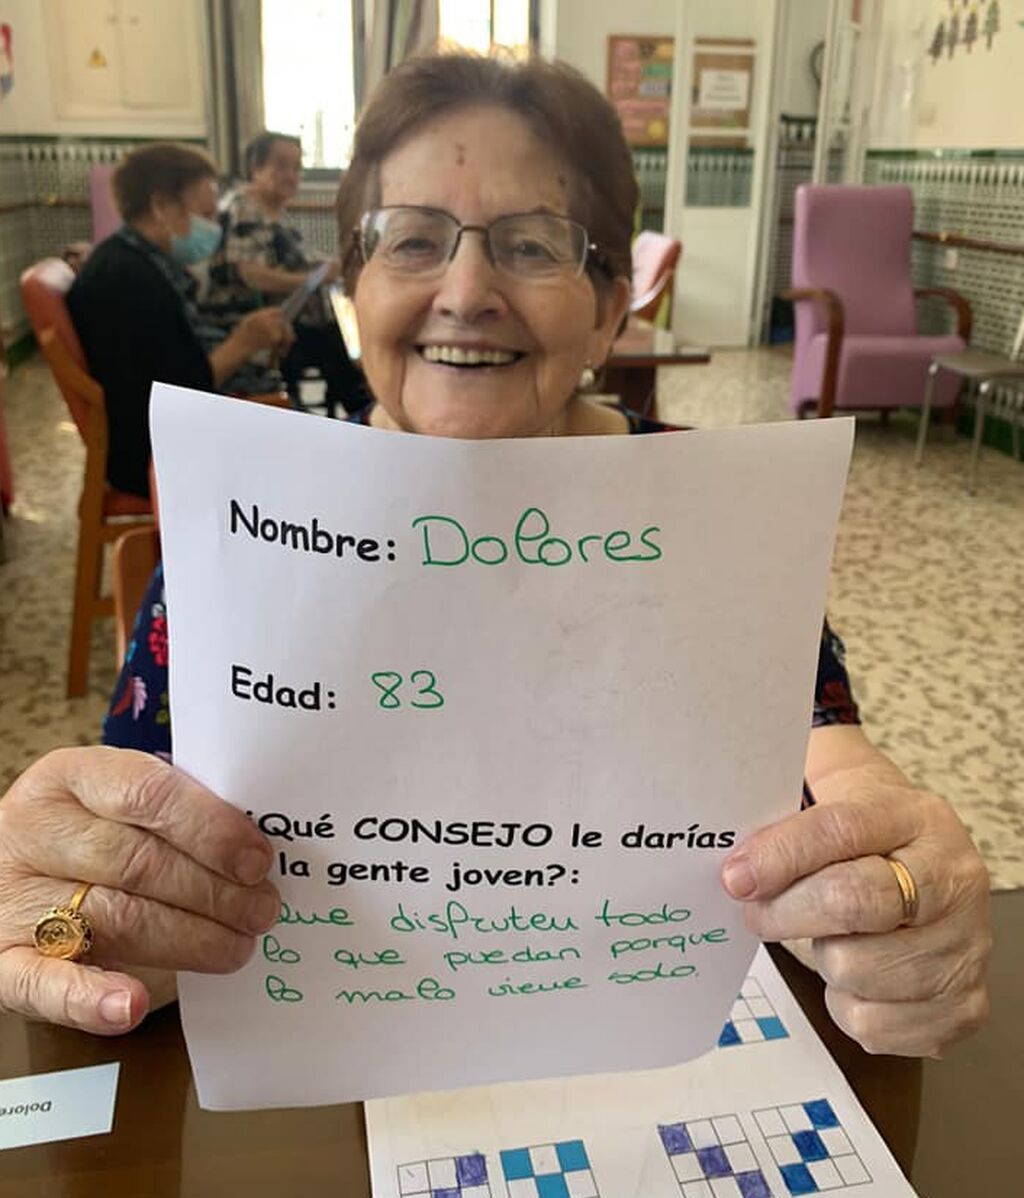 Nombre: Dolores
Edad: 83
¿Qué CONSEJO le darías
la gente joven?:
Que disfruten todo
lo que puedan porque
lo malo viene solo.
Dolore